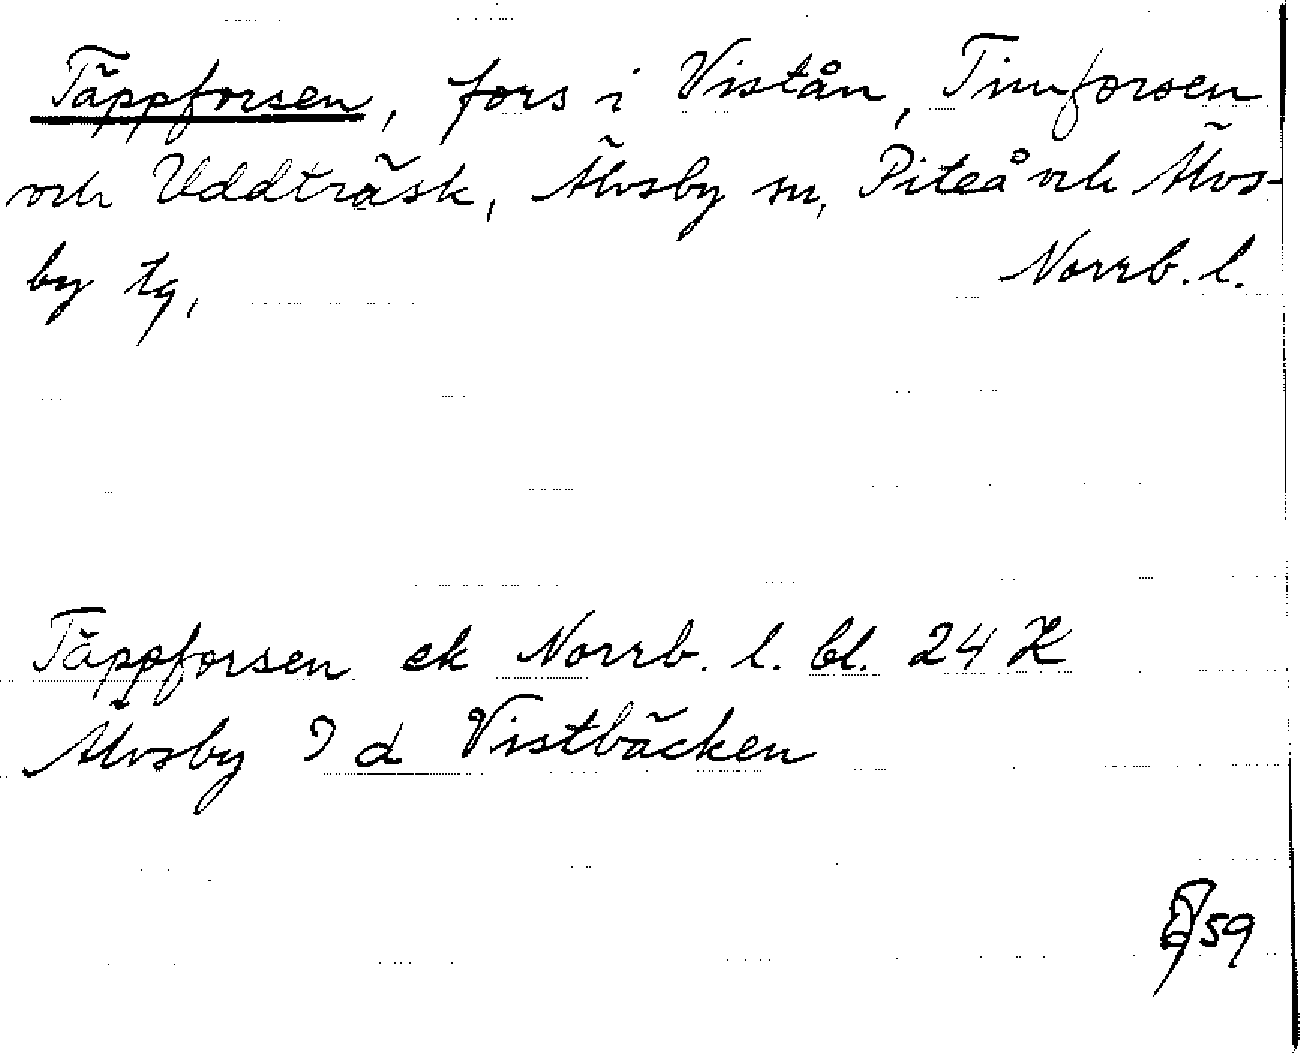 Täppforsen, fors i Vistån, Timforsen
och Uddträsk, Älvsby sn, Piteå och Älvs-
by tg, Norrb. l.
Täppforsen ek Norrb. l. bl. 24 K
Älvsby I d Vistbäcken
59